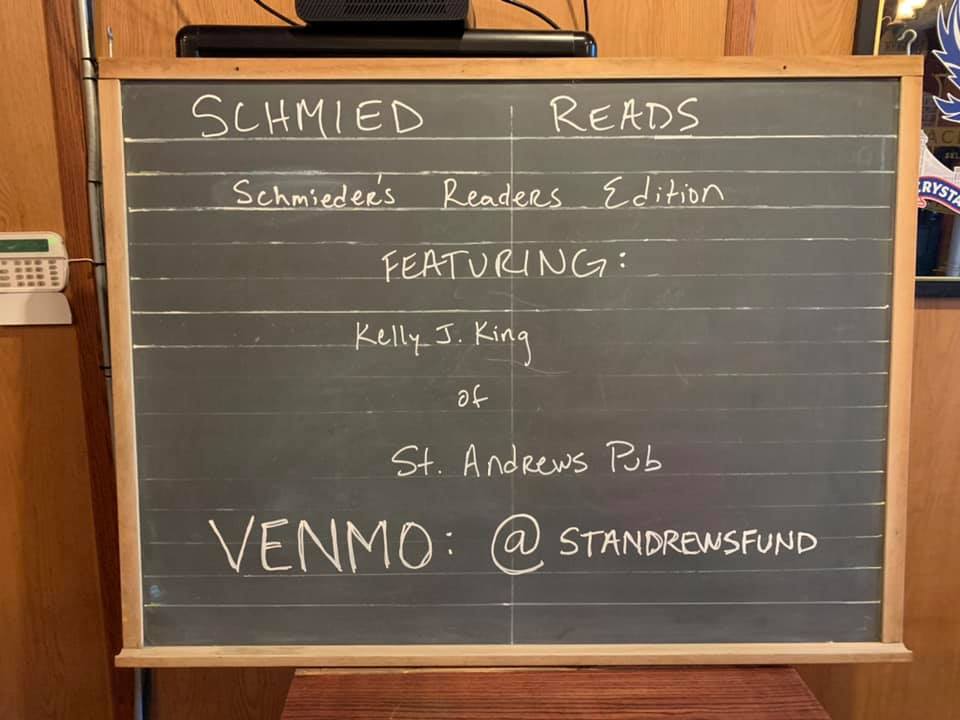 SCHMIED READS
Schmieder's Readers Edition
FEATURING:
Kelly J. King
of
St. Andrews Pub
VENMO: @STANDREWSFUND